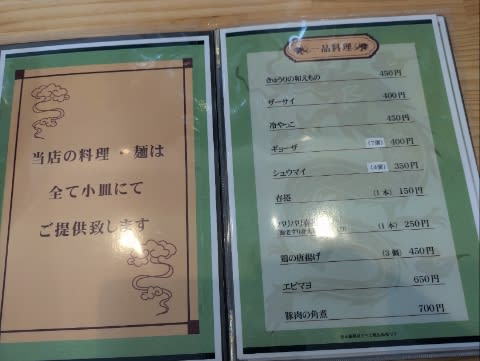 当店の料理・麺は
全て小皿にて
ご提供致します
一品料理
きゅうりの和えもの 450円
ザーサイ 400円
冷やっこ 450円
ギョーザ (7個) 400円
シュウマイ (4個) 350円
春捲 (1本) 150円
パリパリ春
(1本) 250円
鶏の唐揚げ (3個) 450円
エビマヨ 650円
豚肉の角煮 700円